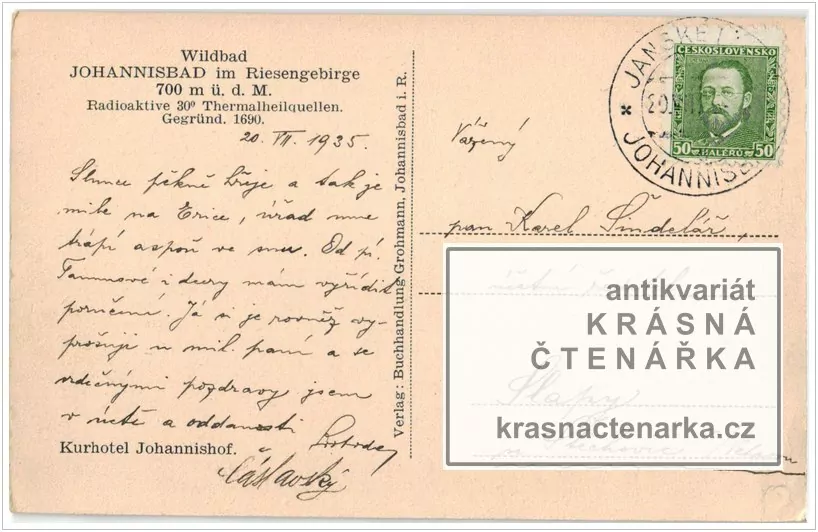 Wildbad
JOHANNISBAD im Riesengebirge
700 m ü. d. M.
Radioaktive 30⁰ Thermalheilquellen.
Gegründ. 1690.
20. VII. 1935.
Slunce pěkně hřeje a tak je
mile na, úřad mne
trápí aspoň ve snu. Od pí.
i dcery mám vyřídit
poručení. Já si je rovněž vy-
prošuji u mil. paní a se
srdečnými pozdravy jsem
v úctě a oddanosti
Čáslavský
Kurhotel Johannishof.
Verlag: Buchhandlung Grohmann, Johannisbad i. R.
JANSKÉ
JOHANNISB
20.VII
ČESKOSLOVENSKO
50 HALÉŘŮ 50
Vážený
pan Karel Šindelář,
Slapy
antikvariát
KRÁSNÁ
ČTENÁŘKA
krasnactenarka.cz